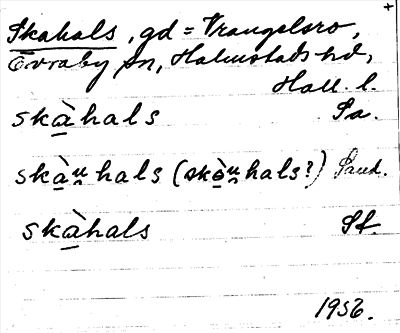 +
Skahals, gd = Vrangelsro,
Övraby sn, Halmstads hd,
Hall. l.
skàhals Sa.
skàu̯hals (skòu̯hals?) Sand.
skàhals Sf.
1956.